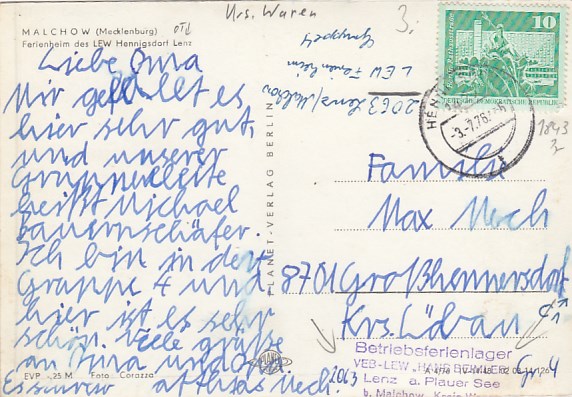 MALCHOW (Mecklenburg)
Ferienheim des LEW Hennigsdorf Lenz
Krs. Waren
3.
Liebe Oma
Mir gefällt es
hier sehr gut,
und unserer
Gruppenleite
heißt Michael
Bauernschäfer.
Ich bin in der
Gruppe 4 und
hier ist es sehr
schön. Viele grüße
an Oma und
Es
EVP -,25 M Foto: Corazza
PLANET-VERLAG BERLIN
Gruppe 4
LEW Ferienheim
2063 Lenz/Malchow
10
DEUTSCHE DEMOKRATISCHE REPUBLIK
-3.-7.76
1843
Familie
Max Mech
8701 Großhennersdorf
Krs. Löbau
Betriebsferienlager
VEB-LEW „HANS BEIMLER"
2063 Lenz a. Plauer See
b. Malchow, Kreis Waren
Gr. 4